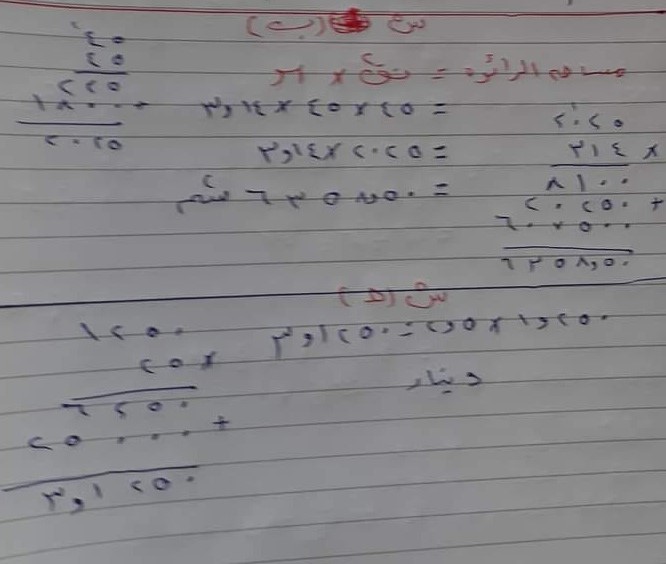 س (ب)
مساحة الدائرة = نق٢ × ط
= ٤٥ × ٤٥ × ٣,١٤
= ٢٠٢٥ × ٣,١٤
= ٦٣٥٨,٥٠ سم٢
٤٥
٤٥
٢٢٥
+ ١٨٠٠
٢٠٢٥
٢٠٢٥
× ٣١٤
٨١٠٠
+ ٢٠٢٥٠
٦٠٧٥٠٠
٦٣٥٨,٥٠
س (هـ)
١,٢٥٠ × ٢,٥ = ٣,١٢٥٠
دينار
١٢٥٠
× ٢٥
٦٢٥٠
+ ٢٥٠٠٠
٣,١٢٥٠